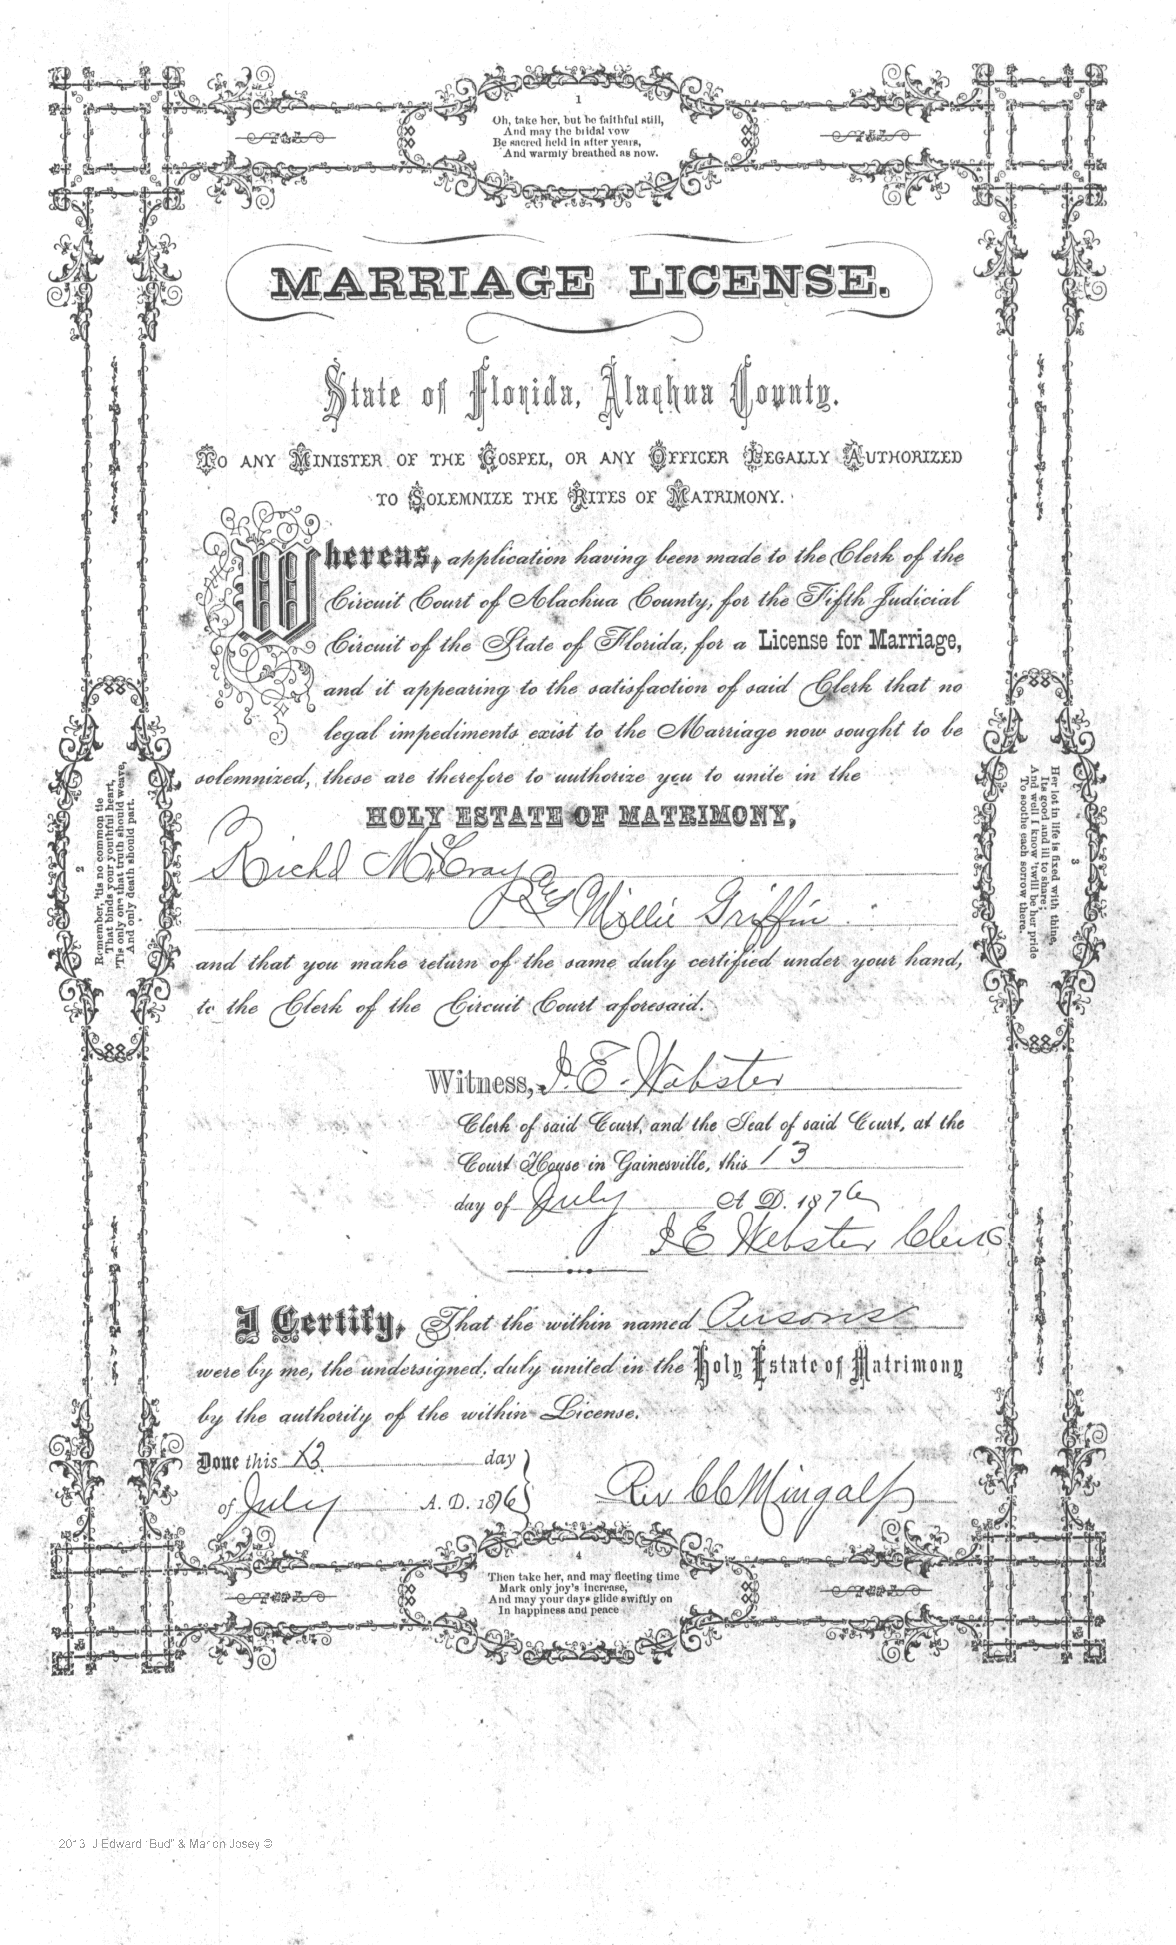 1
Oh, take her, but be faithful still,
And may the bridal vow
Be sacred held in after years,
And warmly breathed as now.
MARRIAGE LICENSE.
State of Florida, Alachua County.
To any Minister of the Gospel, or any Officer Legally Authorized
to Solemnize the Rites of Matrimony.
Whereas, application having been made to the Clerk of the
Circuit Court of Alachua County, for the Fifth Judicial
Circuit of the State of Florida, for a License for Marriage,
and it appearing to the satisfaction of said Clerk that no
legal impediments exist to the Marriage now sought to be
solemnized, these are therefore to authorize you to unite in the
HOLY ESTATE OF MATRIMONY,
Richd McCray
& Millie Griffin
and that you make return of the same duly certified under your hand,
to the Clerk of the Circuit Court aforesaid.
Witness, J. E. Webster
Clerk of said Court, and the Seal of said Court, at the
Court House in Gainesville, this 13
day of July A. D. 1876
J E Webster Clerk
I Certify, That the within named
were by me, the undersigned, duly united in the Holy Estate of Matrimony
by the authority of the within License.
Done this 13 day
of July A. D. 1876
Rev C C
2
Remember, 'tis no common tie
That binds your youthful heart,
'Tis only one that truth should weave,
And only death should part.
3
Her lot in life is fixed with thine,
Its good and ill to share;
And well I know 'twill be her pride
To soothe each sorrow there.
4
Then take her, and may fleeting time
Mark only joy's increase,
And may your days glide swiftly on
In happiness and peace
2013 J Edward "Bud" & Marion Josey ©